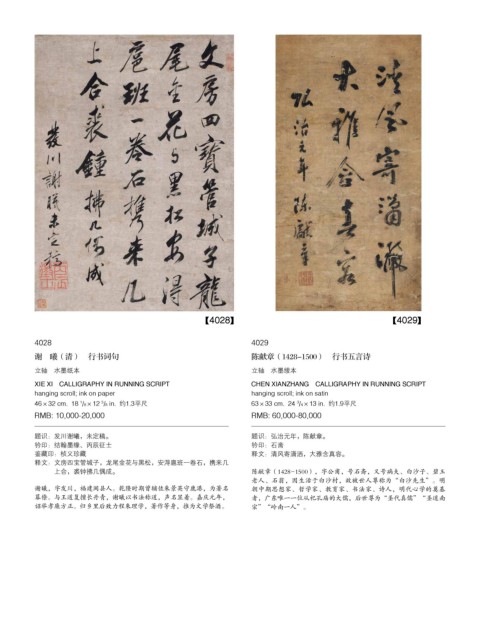 文房四寶管城子龍
尾金花与黑松安得
扈班一卷石携来几
上合裘鍾拂几偶成
發川謝曦未定稿
清風寄瀟灑
大雅含真容
弘治元年陈獻章
【4028】
【4029】
4028
谢　曦（清）　行书词句
立轴　水墨纸本
XIE XI　CALLIGRAPHY IN RUNNING SCRIPT
hanging scroll; ink on paper
46×32 cm. 18 1/8×12 5/8 in. 约1.3平尺
RMB: 10,000-20,000
题识：发川谢曦，未定稿。
钤印：结翰墨缘、丙辰征士
鉴藏印：桢义珍藏
释文：文房四宝管城子，龙尾金花与黑松，安得扈班一卷石，携来几
上合，裘钟拂几偶成。
谢曦，字发川，福建闽县人。乾隆时期曾辅佐朱景英守鹿港，为著名
幕僚。与王道复擅长丹青，谢曦以书法称述，声名显著。嘉庆元年，
诏举孝廉方正。归乡里后致力程朱理学，著作等身，推为文学祭酒。
4029
陈献章（1428-1500）　行书五言诗
立轴　水墨绫本
CHEN XIANZHANG　CALLIGRAPHY IN RUNNING SCRIPT
hanging scroll; ink on satin
63×33 cm. 24 3/4×13 in. 约1.9平尺
RMB: 60,000-80,000
题识：弘治元年，陈献章。
钤印：石斋
释文：清风寄潇洒，大雅含真容。
陈献章（1428-1500），字公甫，号石斋，又号病夫、白沙子、碧玉
老人、石翁，因生活于白沙村，故被世人尊称为“白沙先生”。明
朝中期思想家、哲学家、教育家、书法家、诗人，明代心学的奠基
者，广东唯一一位从祀孔庙的大儒，后世尊为“圣代真儒”“圣道南
宗”“岭南一人”。